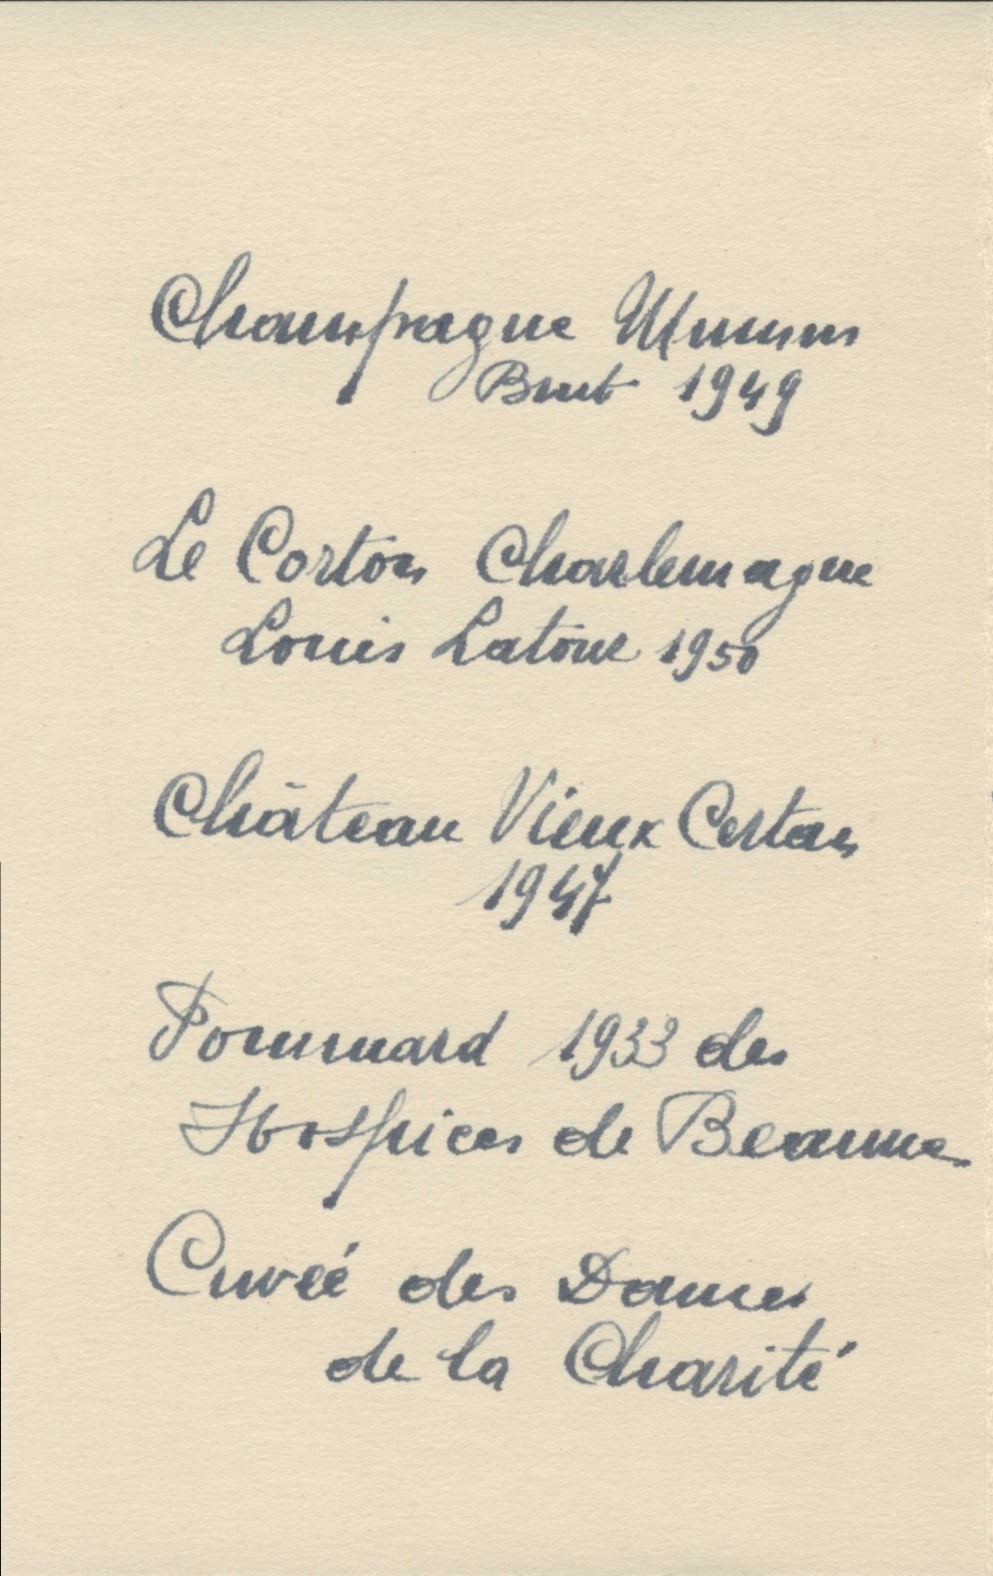 Champagne Mumm
Brut 1949
Le Corton Charlemagne
Louis Latour 1950
Château Vieux Certan
1947
Pommard 1933 des
Hospices de Beaune
Cuvée des Dames
de la Charité